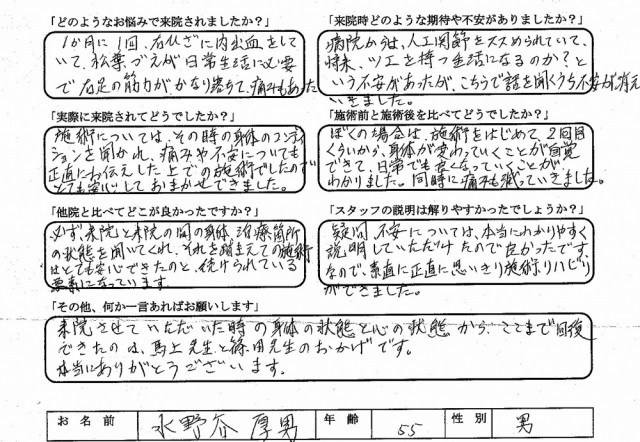 「どのようなお悩みで来院されましたか?」
1か月に1回、右ひざに内出血をして
いて、松葉づえが日常生活に必要
で右足の筋力がかなり落ちて、痛みもあった
「来院時どのような期待や不安がありましたか?」
病院からは、人工関節をススめられていて、
将来、ツエを持つ生活になるのか?と
いう不安があったが、こちらで話を聞くうち不安が消え
いきました。
「実際に来院されてどうでしたか?」
施術については、その時の身体のコンディ
ションを聞かれ、痛みや不安についても
正直にお伝えした上での施術でしたので
とても安心しておまかせできました。
「施術前と施術後を比べてどうでしたか?」
ぼくの場合は、施術をはじめて2回目
くらいから、身体が変わっていくことが自覚
できて、日常でも良くなっていくことが
わかりました。同時に痛みも減っていきました。
「他院と比べてどこが良かったですか?」
必ず、来院と来院の間の身体、治療箇所
の状態を聞いてくれ、それを踏まえての施術
はとても安心できたのと、続けられている
要素になっています
「スタッフの説明は解りやすかったでしょうか?」
疑問、不安については、本当にわかりやすく
説明していただけたので良かったです
なので、素直に正直に思いきり施術、リハビリ
ができました。
「その他、何か一言あればお願いします」
来院させていただいた時の身体の状態と心の状態から、ここまで回復
できたのは、馬上先生と篠田先生のおかげです。
本当にありがとうございます。
お名前 水野谷 厚男 年齢 55 性別 男